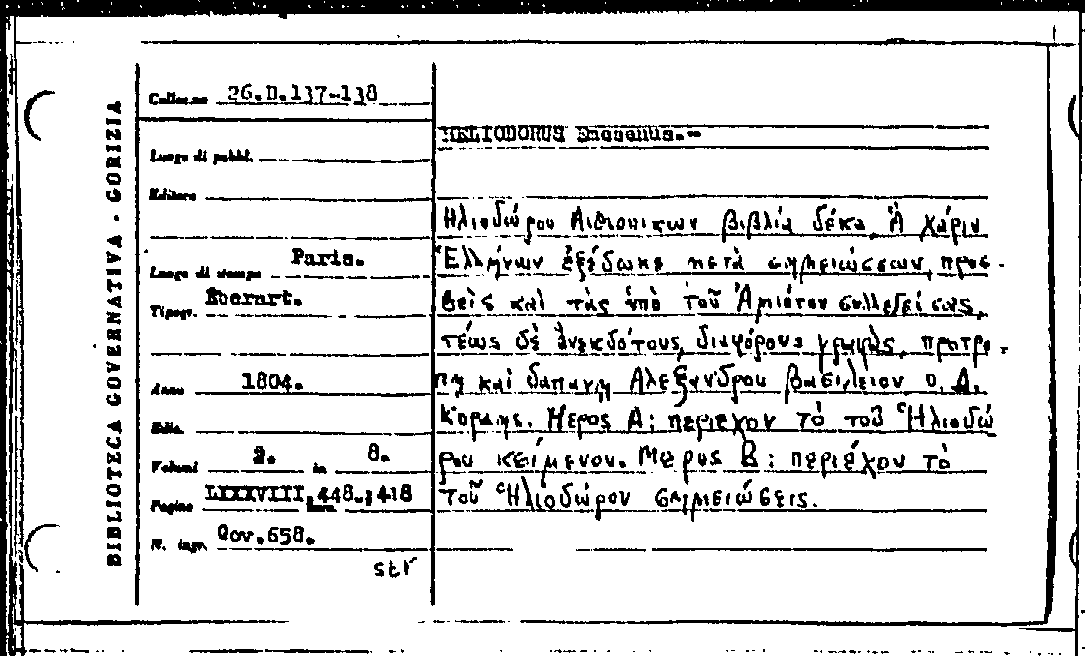 BIBLIOTECA GOVERNATIVA - GORIZIA
Collocne 26.D.137-138
Luogo di pubbl.
Editore
Luogo di stampa Paris.
Tipogr. Eberart.
Anno 1804.
Ediz.
Volumi 2. in 8.
Pagine LIXXVIII,448.;418
N. ingr. Qov.658.
str
HELIODORUS Emesenus.-
Ηλιοδώρου Αιθιοπικων βιβλία δέκα, Ἁ χάριν
Ἑλλήνων ἐξέδωκε μετὰ σημειώσεων, προσ-
θεὶς καὶ τὰς ὑπὸ τοῦ Ἀμιότου συλλεγείσας,
τέως δὲ ἀνεκδότους, διαφόρους γραφὰς, προτρο-
πῃ καὶ δαπανῃ Αλεξάνδρου βασιλείου ο, Δ.
Κοραης. Μερος Α: περιεχον τὸ τοῦ Ἡλιοδώ
ρου κείμενον. Μερος Β: περιέχον τὸ
τοῦ Ἡλιοδώρου σημειώσεις.